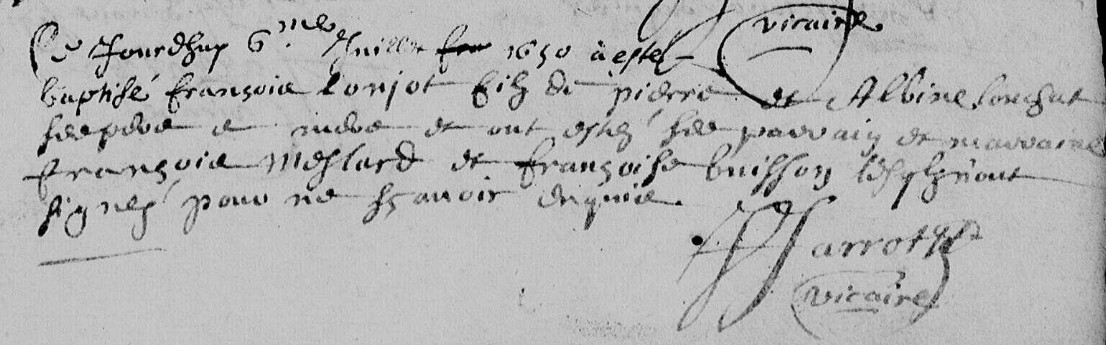 vicaire
Ce Jourdhuy 6me Juillet 1650 à esté
baptisé françois Lorjot filz de pierre et Albine
ses pere e mere et ont estez ses parrain et marraine
françois Meslard et françoise buisson lesqlz n'ont
signez pour ne sçavoir de quoi
Jarrot
vicaire